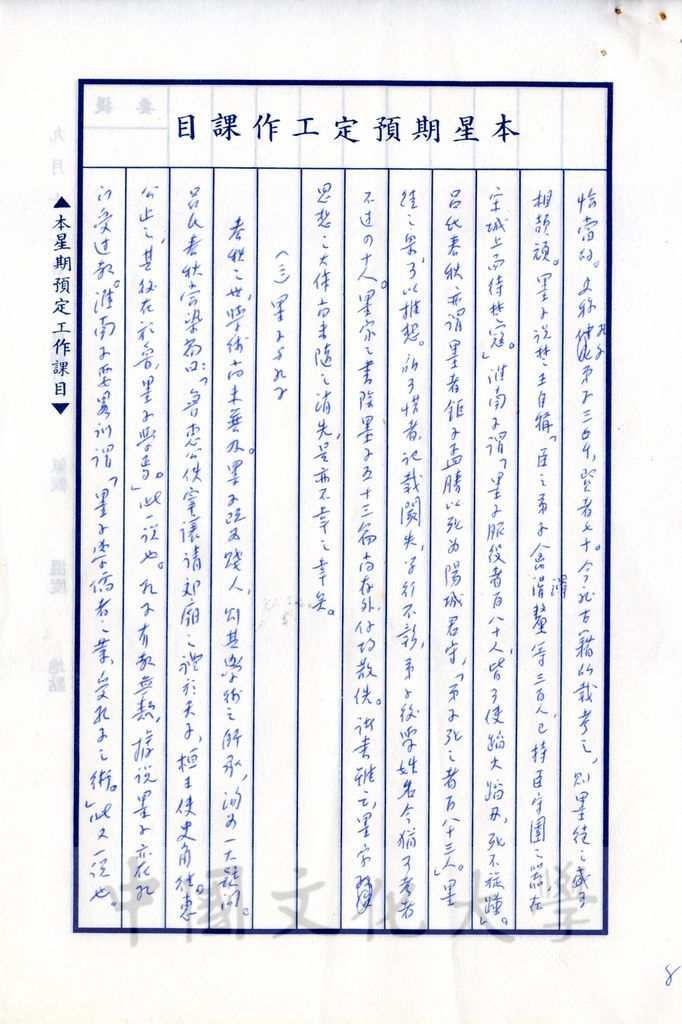 本星期預定工作課目
恰當的。史稱孔子弟子三千,賢者七十。今就古籍的載考之,則墨徒之盛可
相頡頏。墨子說楚王自稱「臣之弟子禽滑釐等三百人,已持臣守圉之器,在
宋城上而待楚寇。」淮南子謂「墨子服役者百八十人,皆可使蹈火蹈刃,死不旋踵。」
呂氏春秋亦謂墨者鉅子孟勝以死為陽城君守,「弟子死之者百八十三人。」墨
徒之眾可以推想。所可惜者,記載闕失,學行不彰,弟子後學姓名今猶可考者
不過四十人。墨家之書除墨子五十三篇尚存外,
思想之大体尚未隨之消失,是亦不幸之幸矣。
(三)墨子與孔子
春秋之世,學術尚未普及。墨子既為賤人,則其學術之所承,洵為一大疑問。
呂氏春秋當染篇曰:「魯惠公使宰讓請郊廟之禮於天子,桓王使史角往。惠
公止之,其後在於魯,墨子學焉。」此一說也。孔子有教無類,或說墨子亦在孔
門受過教。淮南子要畧訓謂「墨子學儒者之業,受孔子之術。」此又一說也。
▲本星期預定工作課目▼
提要
九月
氣候
溫度
地點
中國文化大學
8